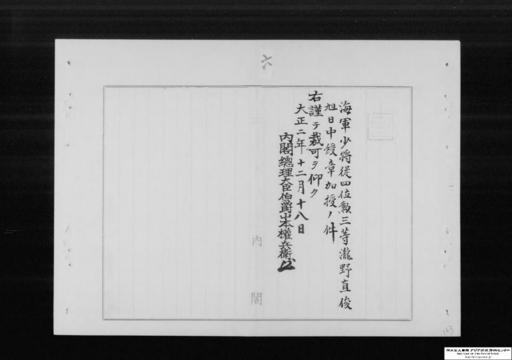 六
海軍少将従四位勲三等瀧野直俊
旭日中綬章加授ノ件
右謹テ裁可ヲ仰ク
大正二年十二月十八日
内閣總理大臣伯爵山本權兵衛
内閣